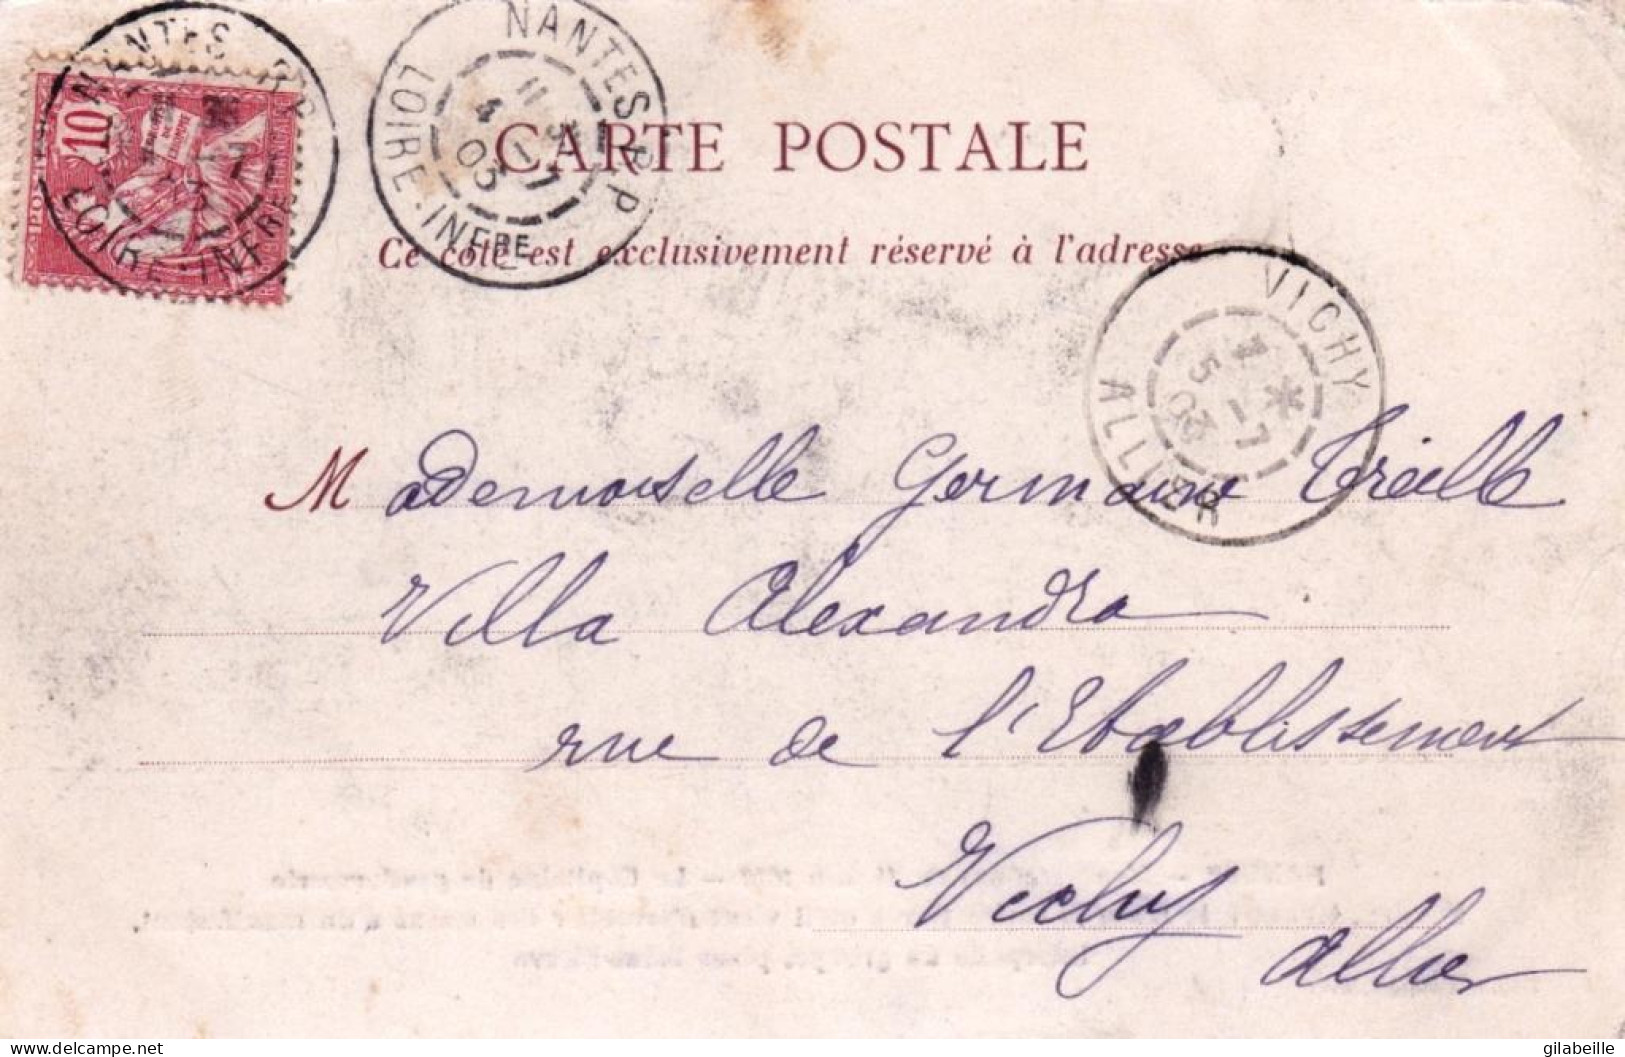 NANTES R.P.
LOIRE-INFRE
10
NANTES R P
11 4
4 -7
03
LOIRE-INFRE
CARTE POSTALE
Ce côté est exclusivement réservé à l'adresse
VICHY
7 *
5 -7
03
ALLIER
Mademoiselle Germaine Treille
Villa Alexandra
rue de l'Etablissement
Vichy
Allier
gilabeille